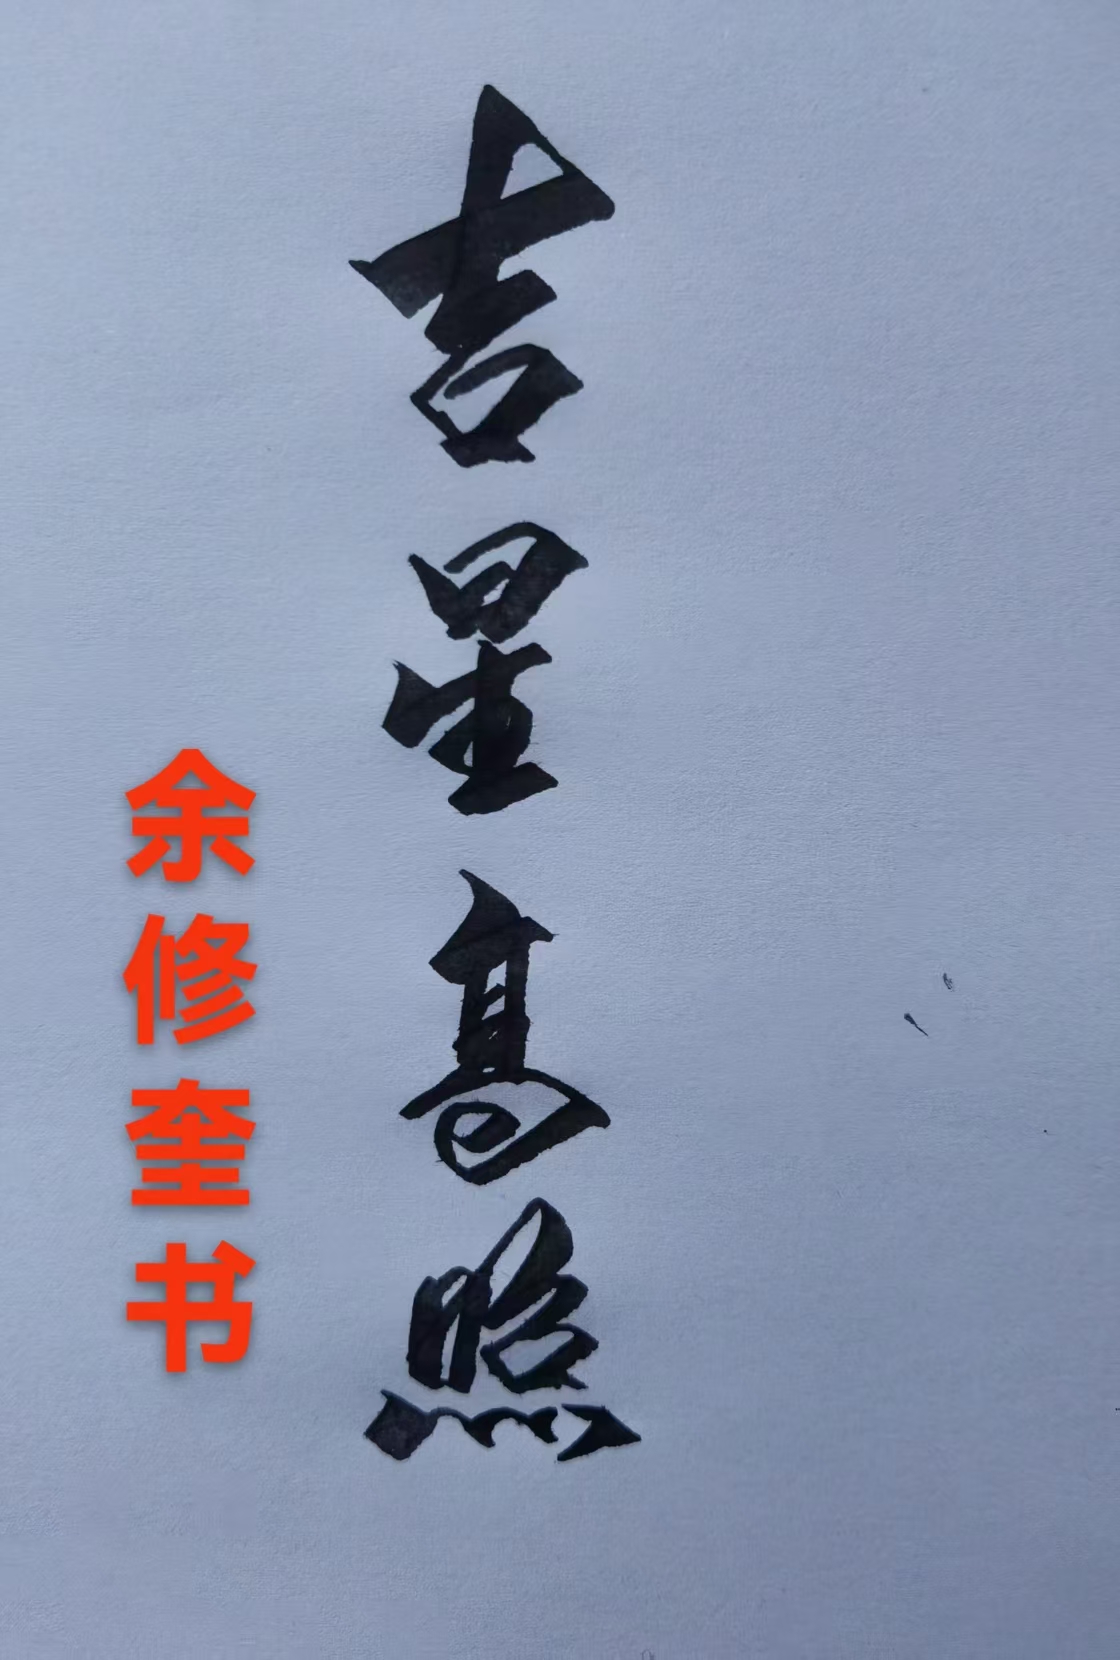 吉星高照
余修奎书